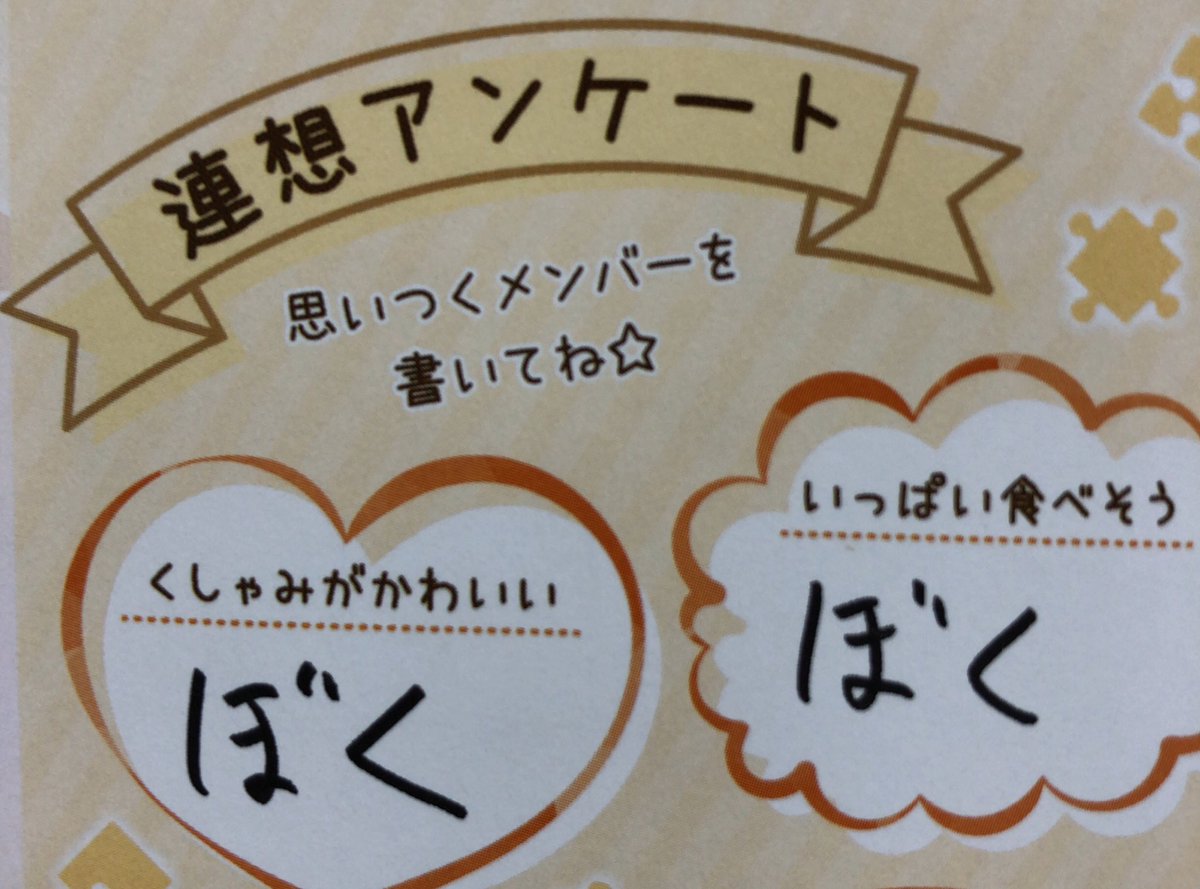 連想アンケート
思いつくメンバーを
書いてね☆
くしゃみがかわいい
ぼく
いっぱい食べそう
ぼく